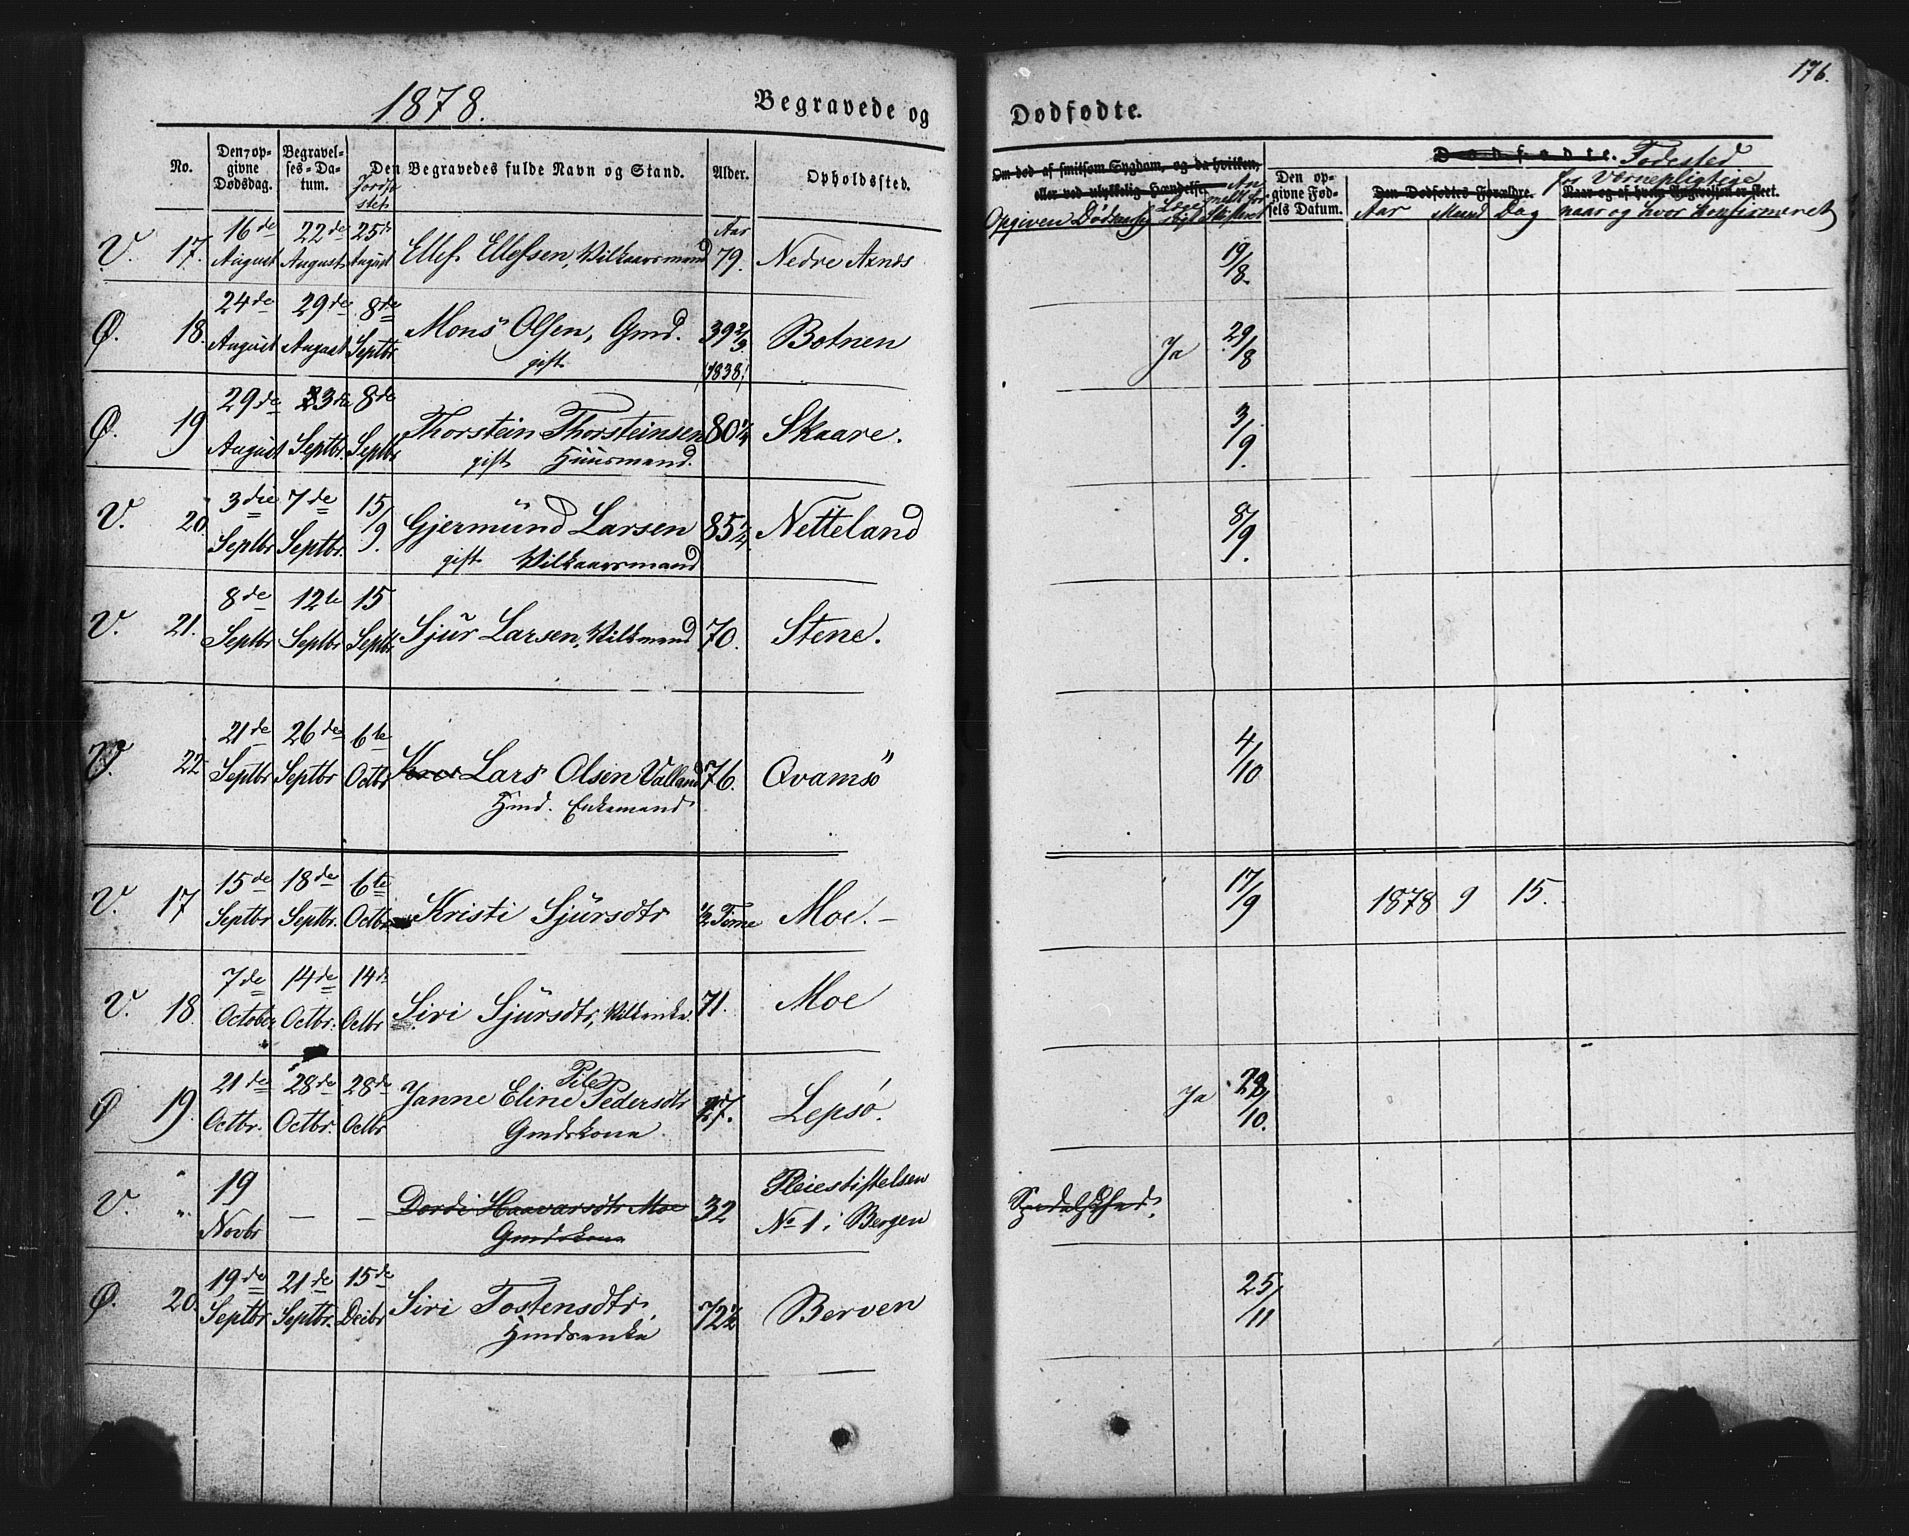 1878. Begravede og Dødfødte. 176.
No. Den opgivne Dødsdag. Begravelses-Datum. Jordfstst. Den Begravedes fulde Navn og Stand. Alder. Opholdssted. Om død af smitsom Sygdom, og da hvilken, eller ved ulykkelig Hændelse. Opgiven Dødsaarsag Den opgivne Fødsels Datum. Dødfødte. Den Dødfødtes Forældre. Aar Maaned Dag Fødested for Værnepligtige naar og hvor Konfirmeret
V. 17. 16de August 22de August 25de August Ellef Ellefsen, Vilkaarsmand Aar 79. Nedre Axnes 19/8
Ø. 18. 24de August 29de August 8de Septbr Mons Olsen, Gmd. 39 2/3 Botnen Ja 29/8
gift (1838)
Ø. 19 29de August 3de Septbr 8de Septbr Thorstein Thorsteinsen 80 1/4 Skaare. 3/9.
gift Huusmand.
V. 20. 3die Septbr 7de Septbr. 15/9. Gjermund Larsen 85 1/4. Netteland 8/9.
gift Vilkaarsmand
V. 21. 8de Septbr 12te Septbr 15 Septbr Sjur Larsen, Vilkmand 70. Stene.
V. 22 21de Septbr 26de Septbr 6te Octbr Lars Olsen Valland 76. Qvamsø 4/10
Hmd. Enkemand
V. 17 15de Septbr 18de Septbr. 6te Octbr Kristi Sjursdtr 1/2 Time Moe. 17/9 1878 9 15.
V. 18. 7de October 14de Octbr. 14de Octbr Siri Sjursdtr, Vilkenke. 71. Moe
Ø 19. 21de Octbr. 28de Octbr. 28de Octbr Janne Eline Pedersdtr 27. Lepsø. Ja 28/10.
Gmdskone.
V. " 19 Novbr – – Dordi Haavarsdtr Moe 32 Pleiestiftelsen No 1 i Bergen Spedalskhed.
Gmdskone
Ø. 20. 19de Septbr 21de Septbr. 15de Decbr Siri Tostensdtr 72 1/2 Berven 25/11
Hmdsenke